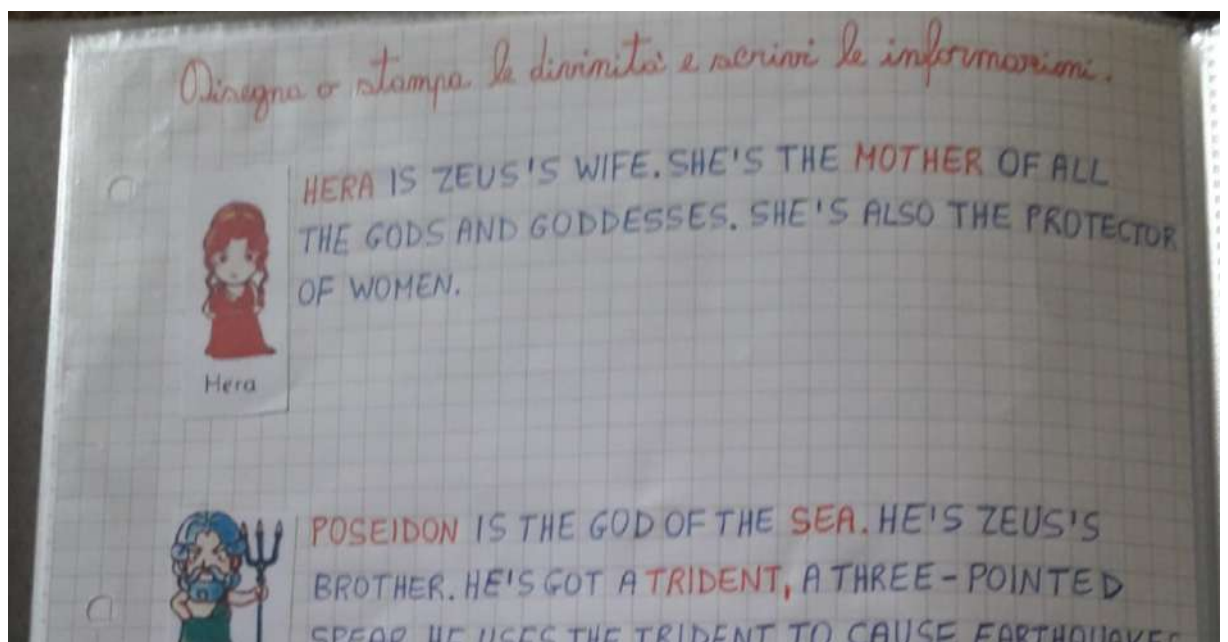 Disegna o stampa le divinità e scrivi le informazioni.
HERA IS ZEUS'S WIFE. SHE'S THE MOTHER OF ALL
THE GODS AND GODDESSES. SHE'S ALSO THE PROTECTOR
OF WOMEN.
Hera
POSEIDON IS THE GOD OF THE SEA. HE'S ZEUS'S
BROTHER. HE'S GOT A TRIDENT, A THREE-POINTED
SPEAR. HE USES THE TRIDENT TO CAUSE EARTHQUAKES